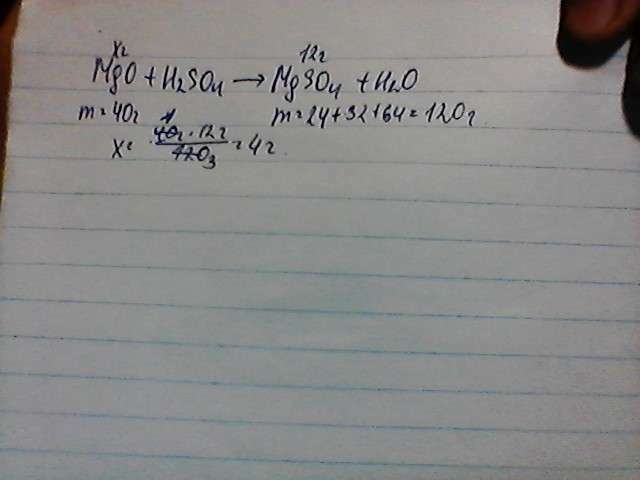 xг 12г
MgO + H2SO4 → MgSO4 + H2O
m = 40г m = 24+32+64 = 120г
x = 40г · 12г / 120 3 = 4г